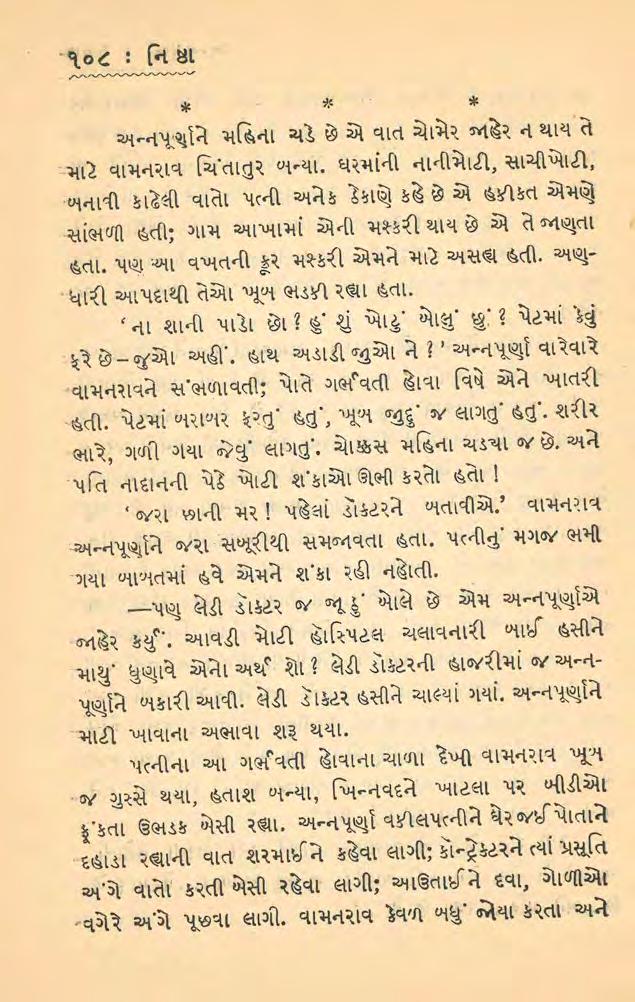 ૧૦૮ : નિષ્ઠા
* * *
અન્નપૂર્ણાને મહિના ચડે છે એ વાત ચોમેર જાહેર ન થાય તે
માટે વામનરાવ ચિંતાતુર બન્યા. ઘરમાંની નાનીમોટી, સાચીખોટી,
બનાવી કાઢેલી વાતો પત્ની અનેક ઠેકાણે કહે છે એ હકીકત એમણે
સાંભળી હતી; ગામ આખામાં એની મશ્કરી થાય છે એ તે જાણતા
હતા. પણ આ વખતની ક્રૂર મશ્કરી એમને માટે અસહ્ય હતી. અણ-
ધારી આપદાથી તેઓ ખૂબ ભડકી રહ્યા હતા.
‘ના શાની પાડો છો? હું શું ખોટું બોલું છું? પેટમાં કેવું
ફરે છે–જુઓ અહીં. હાથ અડાડી જુઓ ને?’ અન્નપૂર્ણા વારેવારે
વામનરાવને સંભળાવતી; પોતે ગર્ભવતી હોવા વિષે એને ખાતરી
હતી. પેટમાં બરાબર ફરતું હતું, ખૂબ જુદું જ લાગતું હતું. શરીર
ભારે, ગળી ગયા જેવું લાગતું. ચોક્કસ મહિના ચડ્યા જ છે. અને
પતિ નાદાનની પેઠે ખોટી શંકાઓ ઊભી કરતો હતો!
‘જરા છાની મર! પહેલાં ડૉકટરને બતાવીએ.’ વામનરાવ
અન્નપૂર્ણાને જરા સબૂરીથી સમજાવતા હતા. પત્નીનું મગજ ભમી
ગયા બાબતમાં હવે એમને શંકા રહી નહોતી.
—પણ લેડી ડૉક્ટર જ જૂઠું બોલે છે એમ અન્નપૂર્ણાએ
જાહેર કર્યું. આવડી મોટી હૉસ્પિટલ ચલાવનારી બાઈ હસીને
માથું ધુણાવે એનો અર્થ શો? લેડી ડૉક્ટરની હાજરીમાં જ અન્ન-
પૂર્ણાને બકારી આવી. લેડી ડૉક્ટર હસીને ચાલ્યાં ગયાં. અન્નપૂર્ણાને
માટી ખાવાના અભાવા શરૂ થયા.
પત્નીના આ ગર્ભવતી હોવાના ચાળા દેખી વામનરાવ ખૂબ
જ ગુસ્સે થયા, હતાશ બન્યા, ખિન્નવદને ખાટલા પર બીડીઓ
ફૂંકતા ઉભડક બેસી રહ્યા. અન્નપૂર્ણા વકીલપત્નીને ઘેર જઈ પોતાને
દહાડા રહ્યાની વાત શરમાઈને કહેવા લાગી; કૉન્ટ્રેક્ટરને ત્યાં પ્રસૂતિ
અંગે વાતો કરતી બેસી રહેવા લાગી; આઉતાઈને દવા, ગોળીઓ
વગેરે અંગે પૂછવા લાગી. વામનરાવ કેવળ બધું જોયા કરતા અને